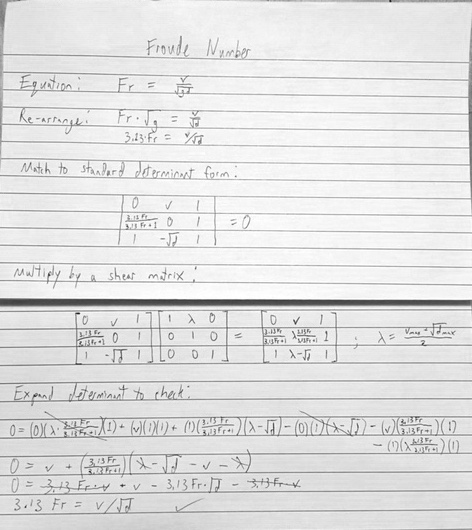 Froude Number
Equation: Fr = v/√(gd)
Re-arrange: Fr·√g = v/√d
3.13·Fr = v/√d
Match to standard determinant form:
| 0 v 1 |
| 3.13 Fr/3.13 Fr+1 0 1 | = 0
| 1 -√d 1 |
Multiply by a shear matrix:
[ 0 v 1 ] [ 1 λ 0 ] = [ 0 v 1 ]
[ 3.13 Fr/3.13 Fr+1 0 1 ] [ 0 1 0 ] [ 3.13 Fr/3.13 Fr+1 λ 3.13 Fr/3.13 Fr+1 1 ] ; λ = v max + √d max/2
[ 1 -√d 1 ] [ 0 0 1 ] [ 1 λ-√d 1 ]
Expand determinant to check:
0 = (0)(λ·3.13 Fr/3.13 Fr+1)(1) + (v)(1)(1) + (1)(3.13 Fr/3.13 Fr+1)(λ-√d) - (0)(1)(λ-√d) - (v)(3.13 Fr/3.13 Fr+1)(1)
- (1)(λ 3.13 Fr/3.13 Fr+1)(1)
0 = v + (3.13 Fr/3.13 Fr+1)(λ - √d - v - λ)
0 = 3.13 Fr·v + v - 3.13 Fr·√d - 3.13 Fr·v
3.13 Fr = v/√d ✓